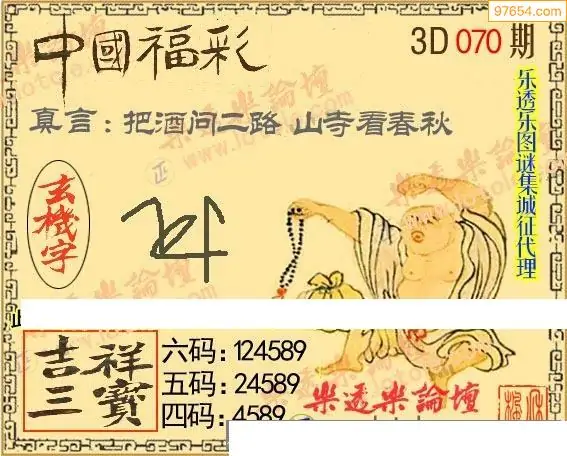 97654.com
中國福彩
3D 070 期
真言：把酒问二路 山寺看春秋
玄機字
乐透乐图谜集城征代理
吉祥三寶
六码：124589
五码：24589
四码：4589
樂透樂論壇